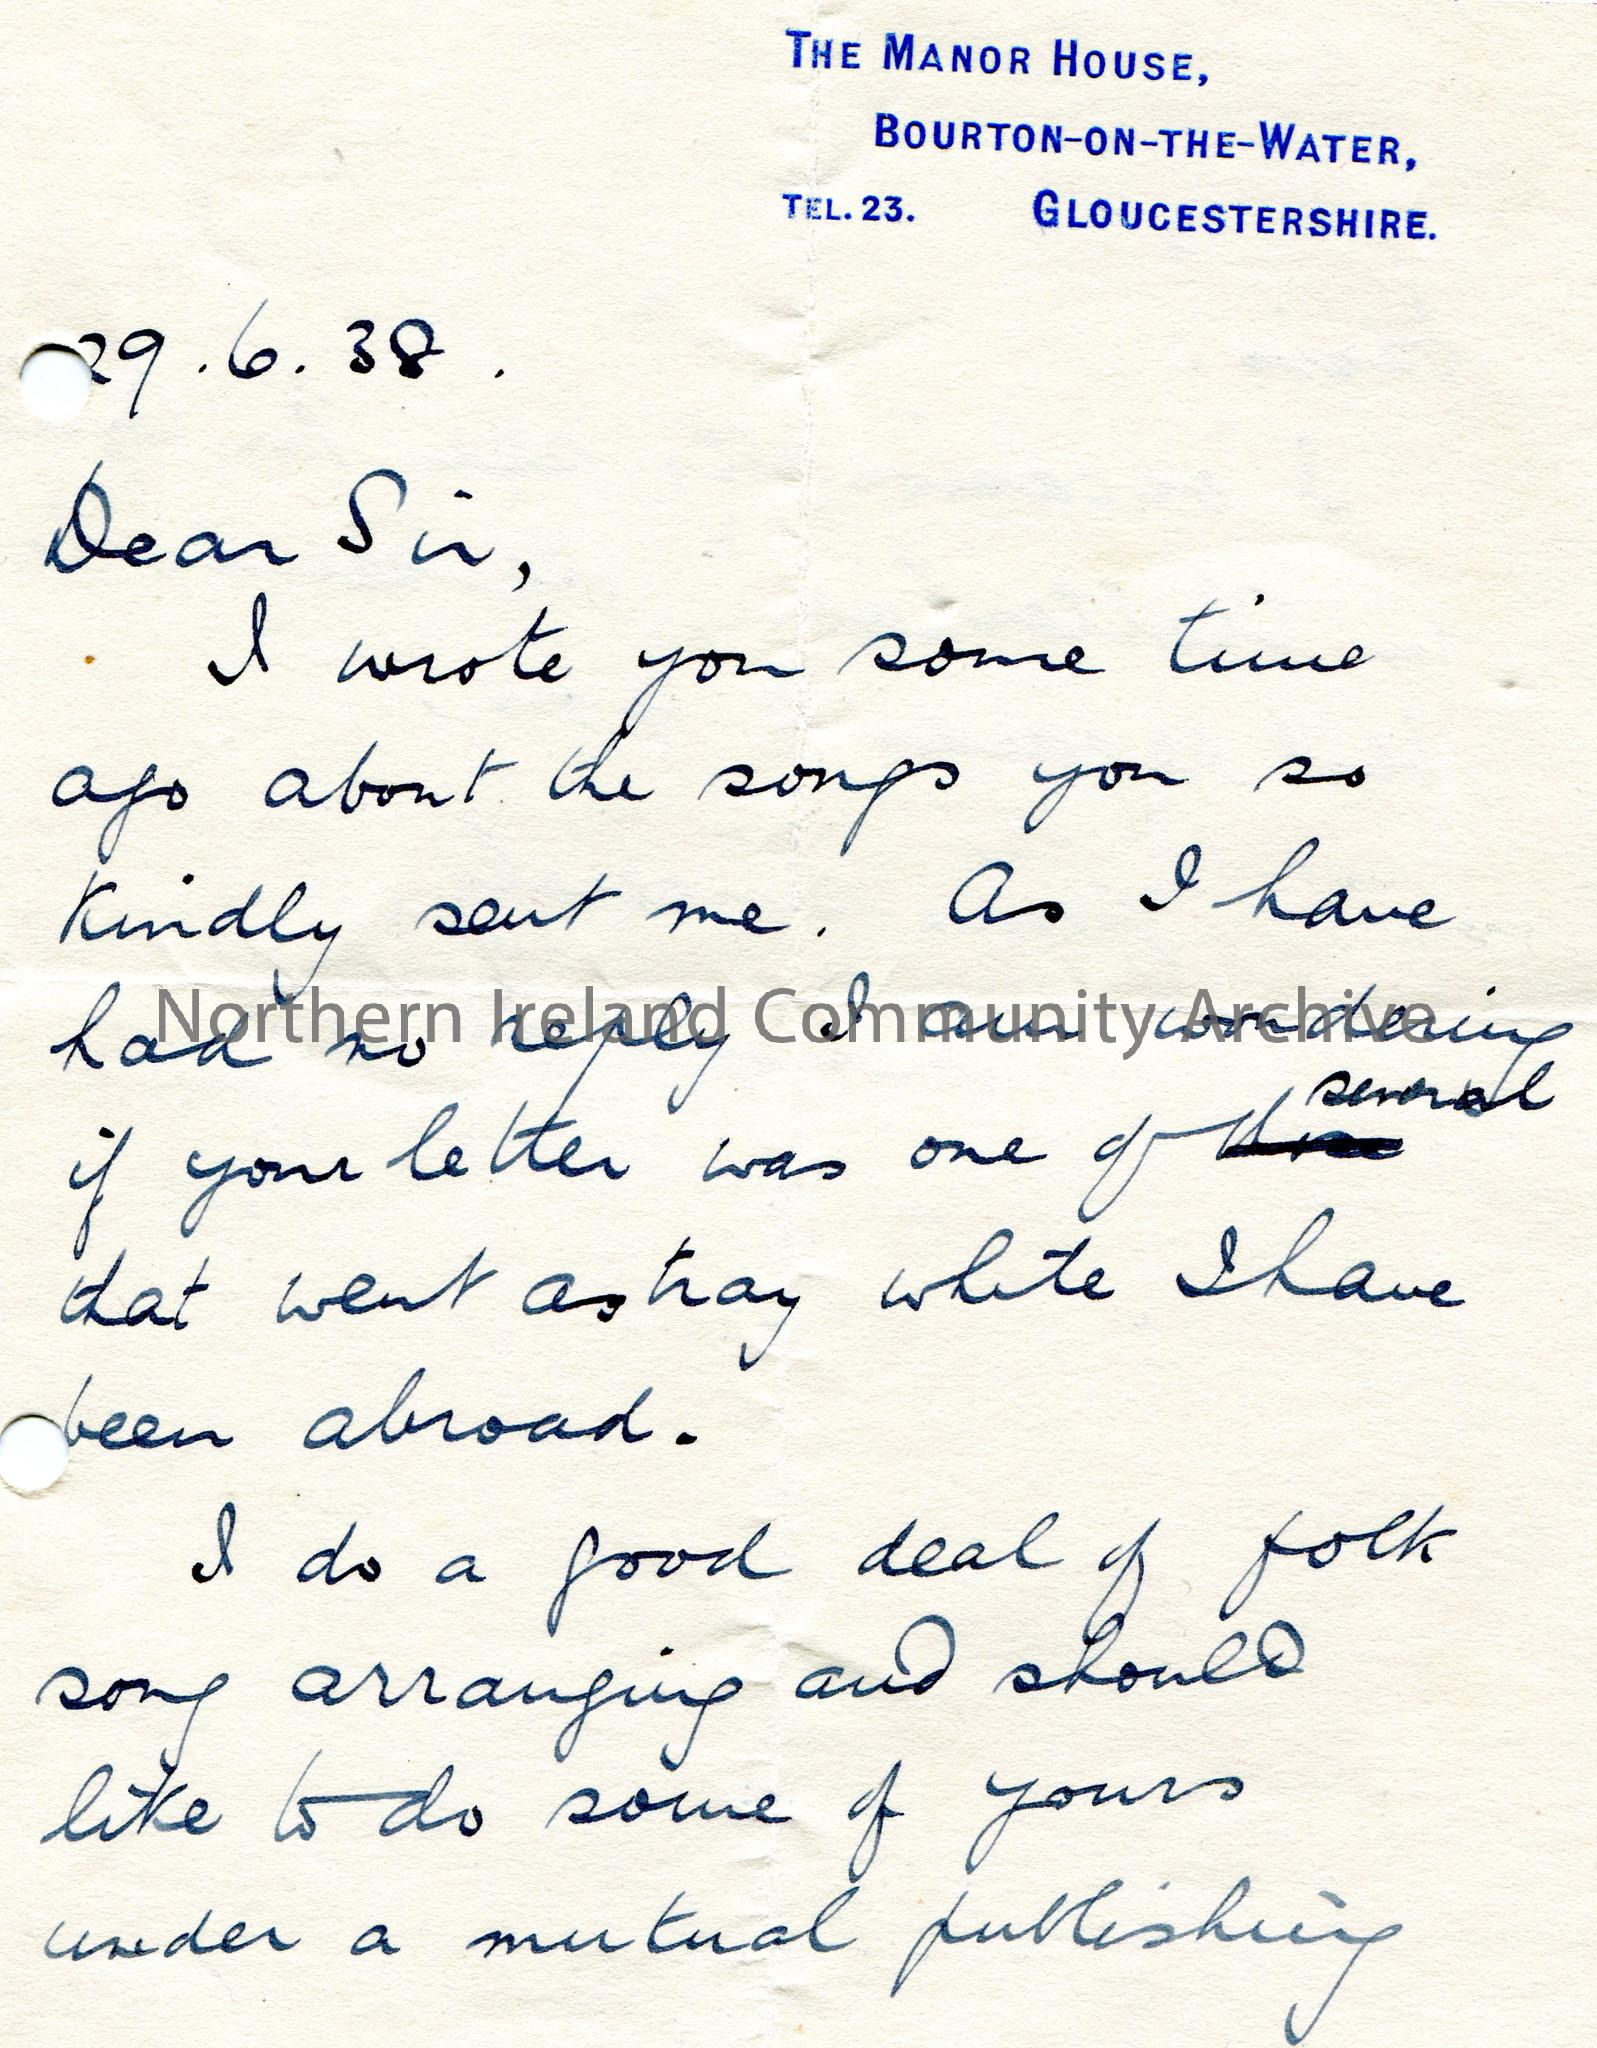 THE MANOR HOUSE,
BOURTON-ON-THE-WATER,
TEL. 23. GLOUCESTERSHIRE.
29.6.38.
Dear Sir,
I wrote you some time
ago about the songs you so
kindly sent me. As I have
had no reply I am wondering
Northern Ireland Community Archive
several
if your letter was one of
that went astray while I have
been abroad.
I do a good deal of folk
song arranging and should
like to do some of yours
under a mutual publishing